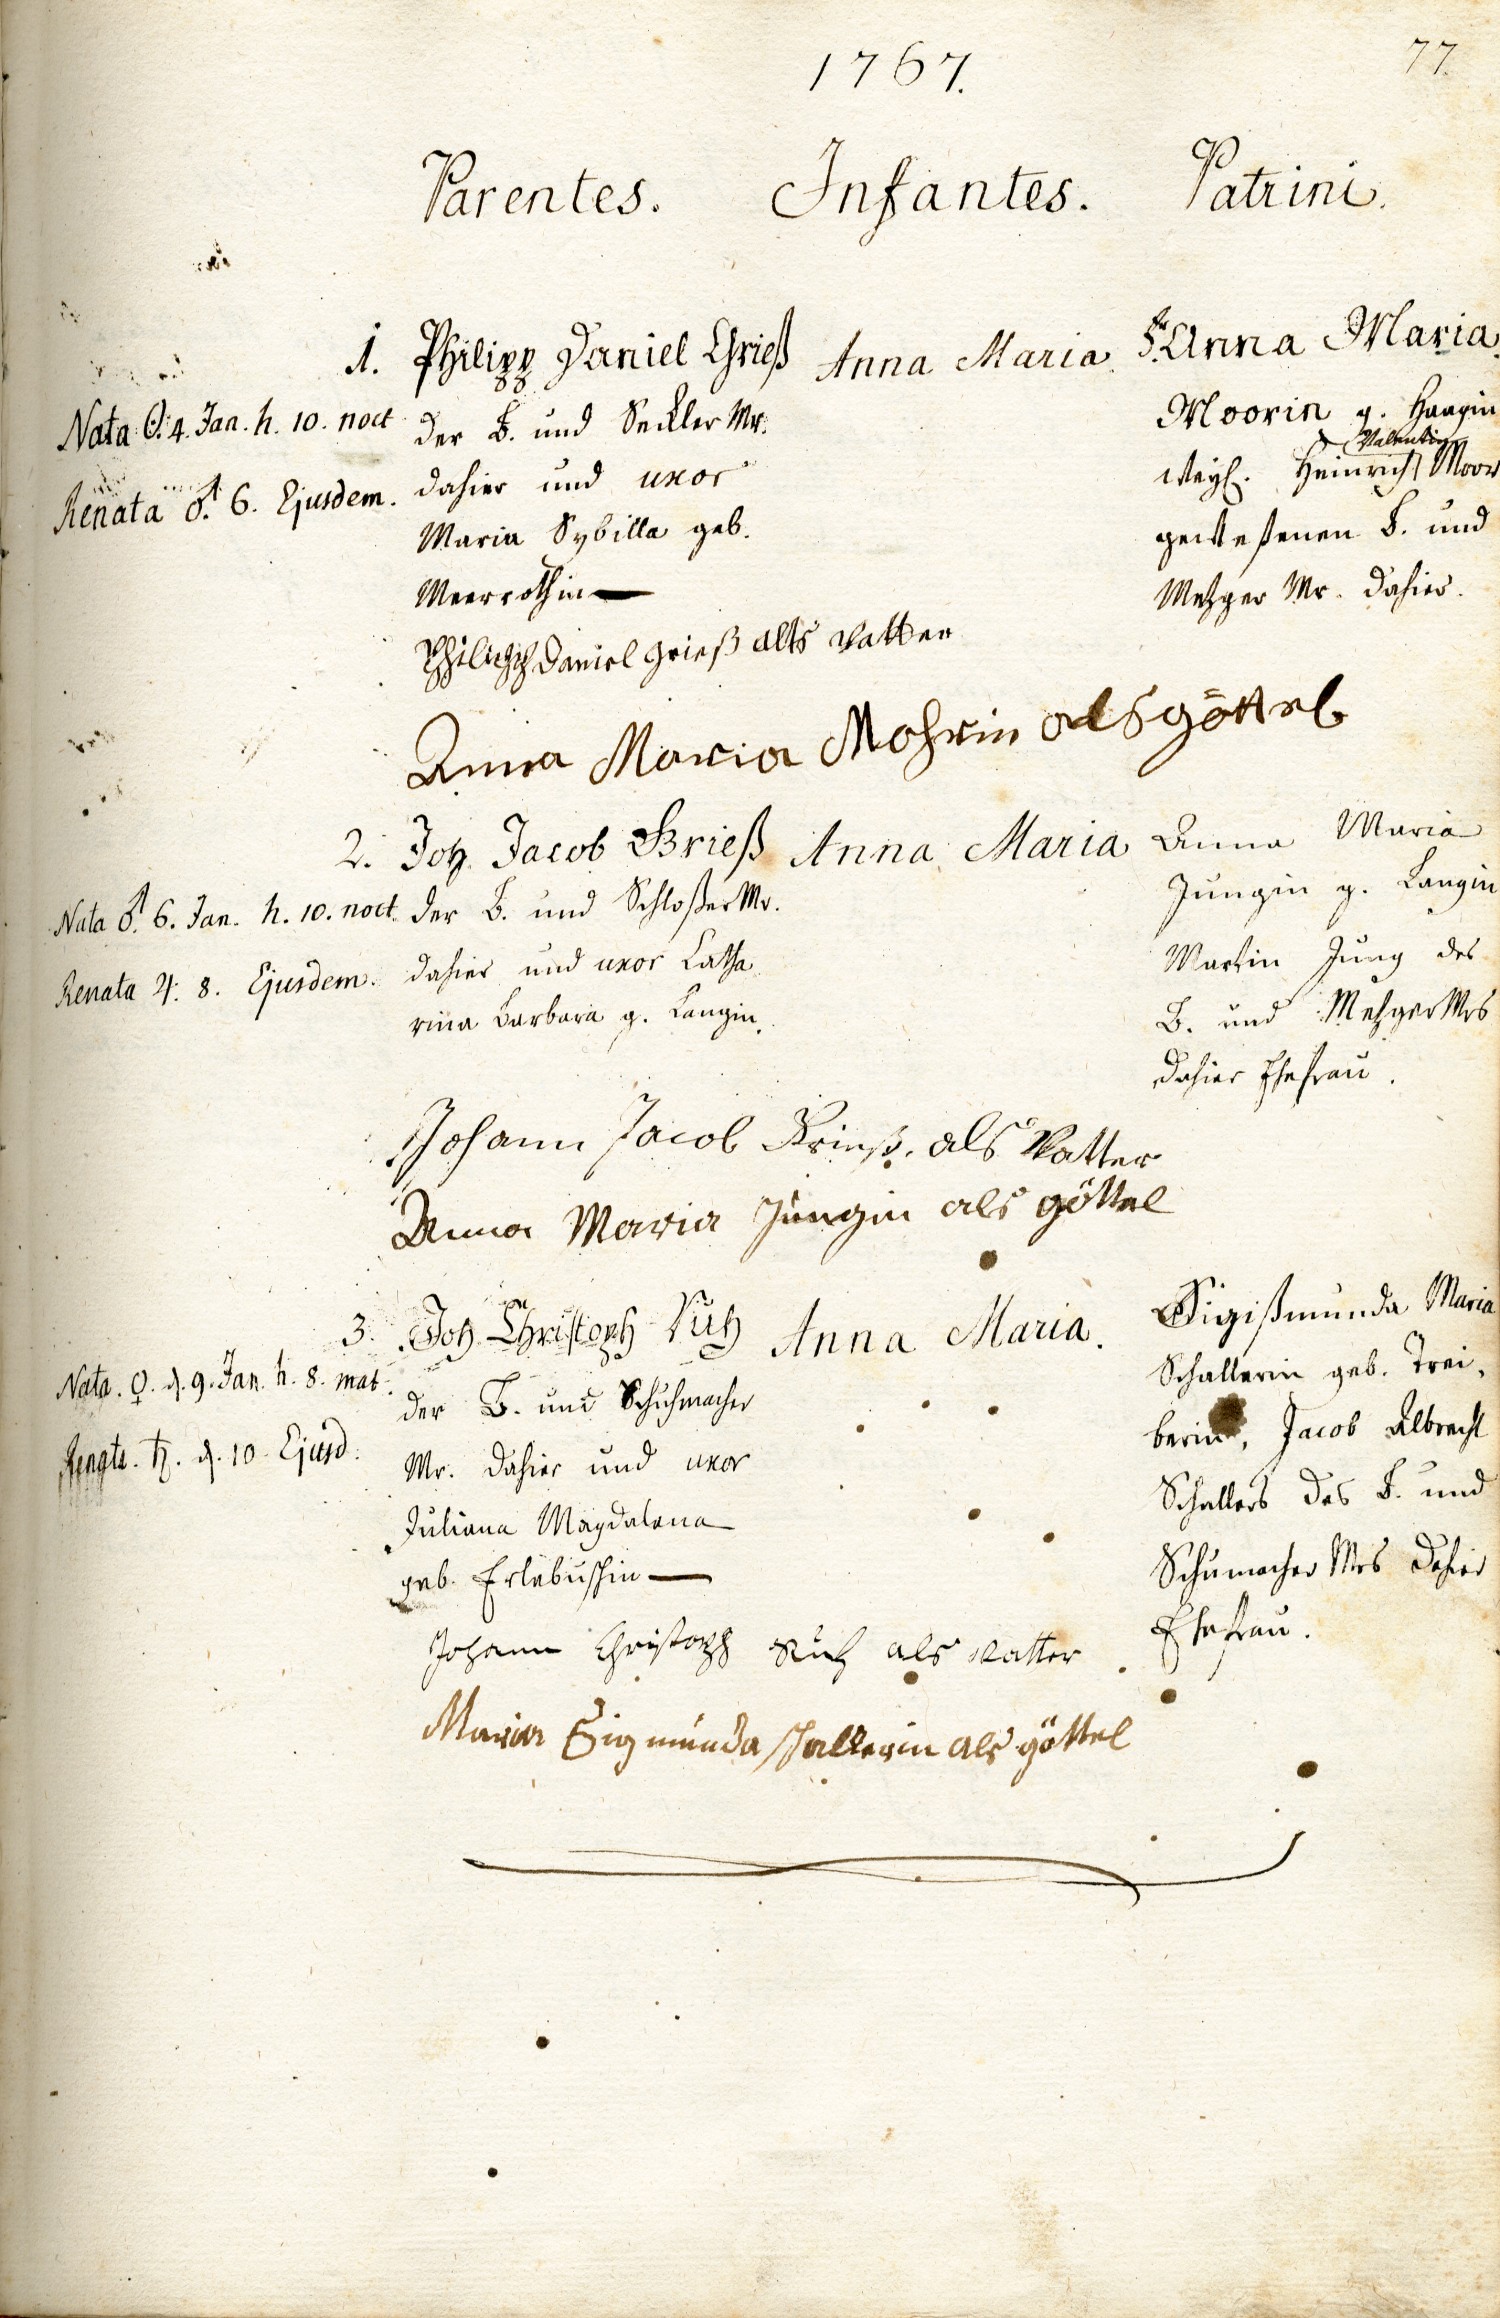 1767.
77.
Parentes. Infantes. Patrini.
1. Philipp Daniel Grieß
der B. und Seckler Mr.
dahier und uxor
Maria Sybilla geb.
Meerrothin
Nata ☉. 4. Jan. h. 10. noct
Renata ♂. 6. Ejusdem.
Anna Maria
Anna Maria
Moorin g. Haagin
Valentin
weyl. Heinrich Moor
geweßenen B. und
Metzger Mr. dahier.
Philipp Daniel Grieß alts Vatter
Anna Maria Mohrin als göttel
2. Joh. Jacob Grieß
der B. und Schloßer Mr.
dahier und uxor Catha
rina Barbara g. Langin.
Nata ♂. 6. Jan. h. 10. noct.
Renata ♃. 8. Ejusdem.
Anna Maria
Anna Maria
Jungin g. Langin
Martin Jung des
B. und Metzger Mrs
dahier Ehefrau.
Johann Jacob Krieß. als Vatter
Anna Maria Jungin als göttel
3. Joh. Christoph
der B. und Schuhmacher
Mr. dahier und uxor
Juliana Magdalena
geb. Erlebußhin
Nata. ♀. d. 9. Jan. h. 8. mat.
Renata. ♄. d. 10 Ejusd.
Anna Maria.
Sigißmunda Maria
Schallerin geb. Trei,
berin, Jacob Albrecht
Schallers des B. und
Schumacher Mrs dahier
Ehefrau.
Johann Christoph als Vatter
Maria Sigmunda schallerin als göttel